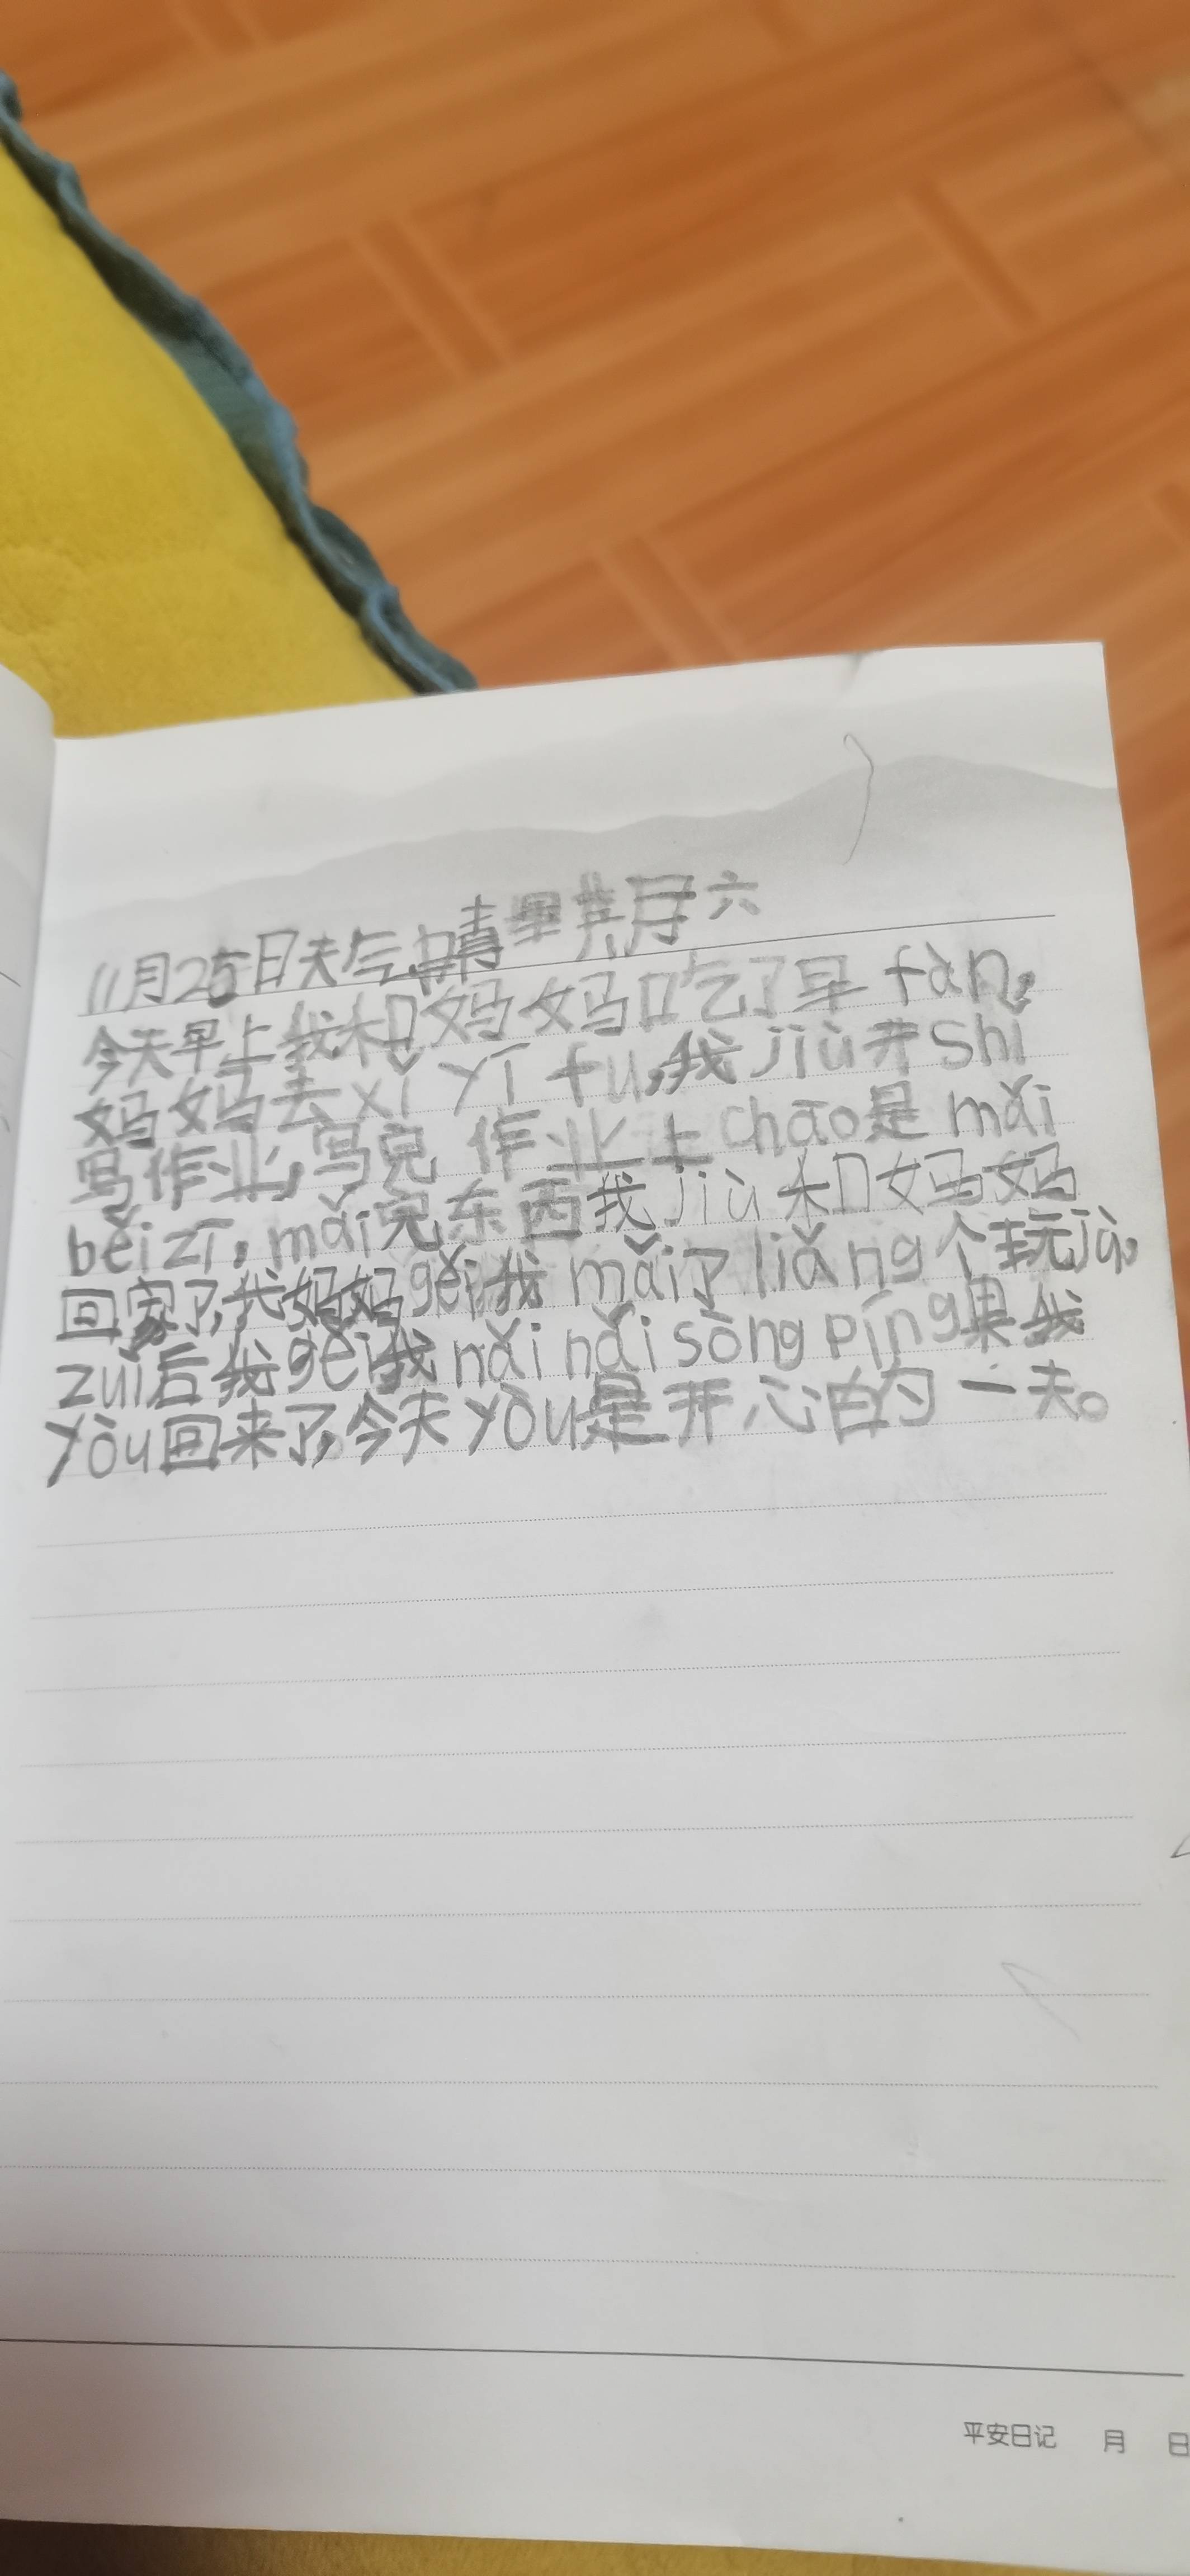 11月25日天气晴星其月六
今天早上我和妈妈吃了早 fàn,
妈妈去xǐ yī fu,我jiù开shǐ
写作业,写完 作业上chāo是 mǎi
bēi zi,mǎi完东西我jiù 和妈妈
回家了,我妈妈gěi我 mǎi了 liǎng个玩jù。
zuì后我gěi我nǎi nǎi sòng píng果我
yòu回来了,今天yòu是开心的一天。
平安日记 月 日